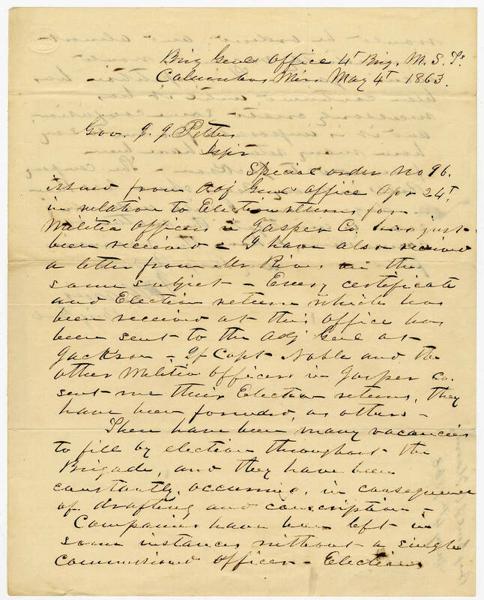 Brig Genls Office 4th Brig. M. S. T.
Columbus, Miss. May 4th 1863.
Gov. J. J. Pettus
Special order No 96.
issued from Adj Genls Office Apr 24th
in relation to Election returns for
Militia Officers in Jasper Co. has just
been received - I have also received
a letter from Mr. in the
same subject - Every certificate
and Election return which has
been received at this office has
been sent to the Adj Genl at
Jackson - If Capt Noble and the
other Militia Officers in Jasper Co.
sent me their Election returns, they
have been forwarded, as others -
There have been many vacancies
to fill by election throughout the
Brigade, and they have been
constantly, occurring, in consequence
of drafting and conscription -
Companies have been left in
some instances without a single
commissioned officer - Elections